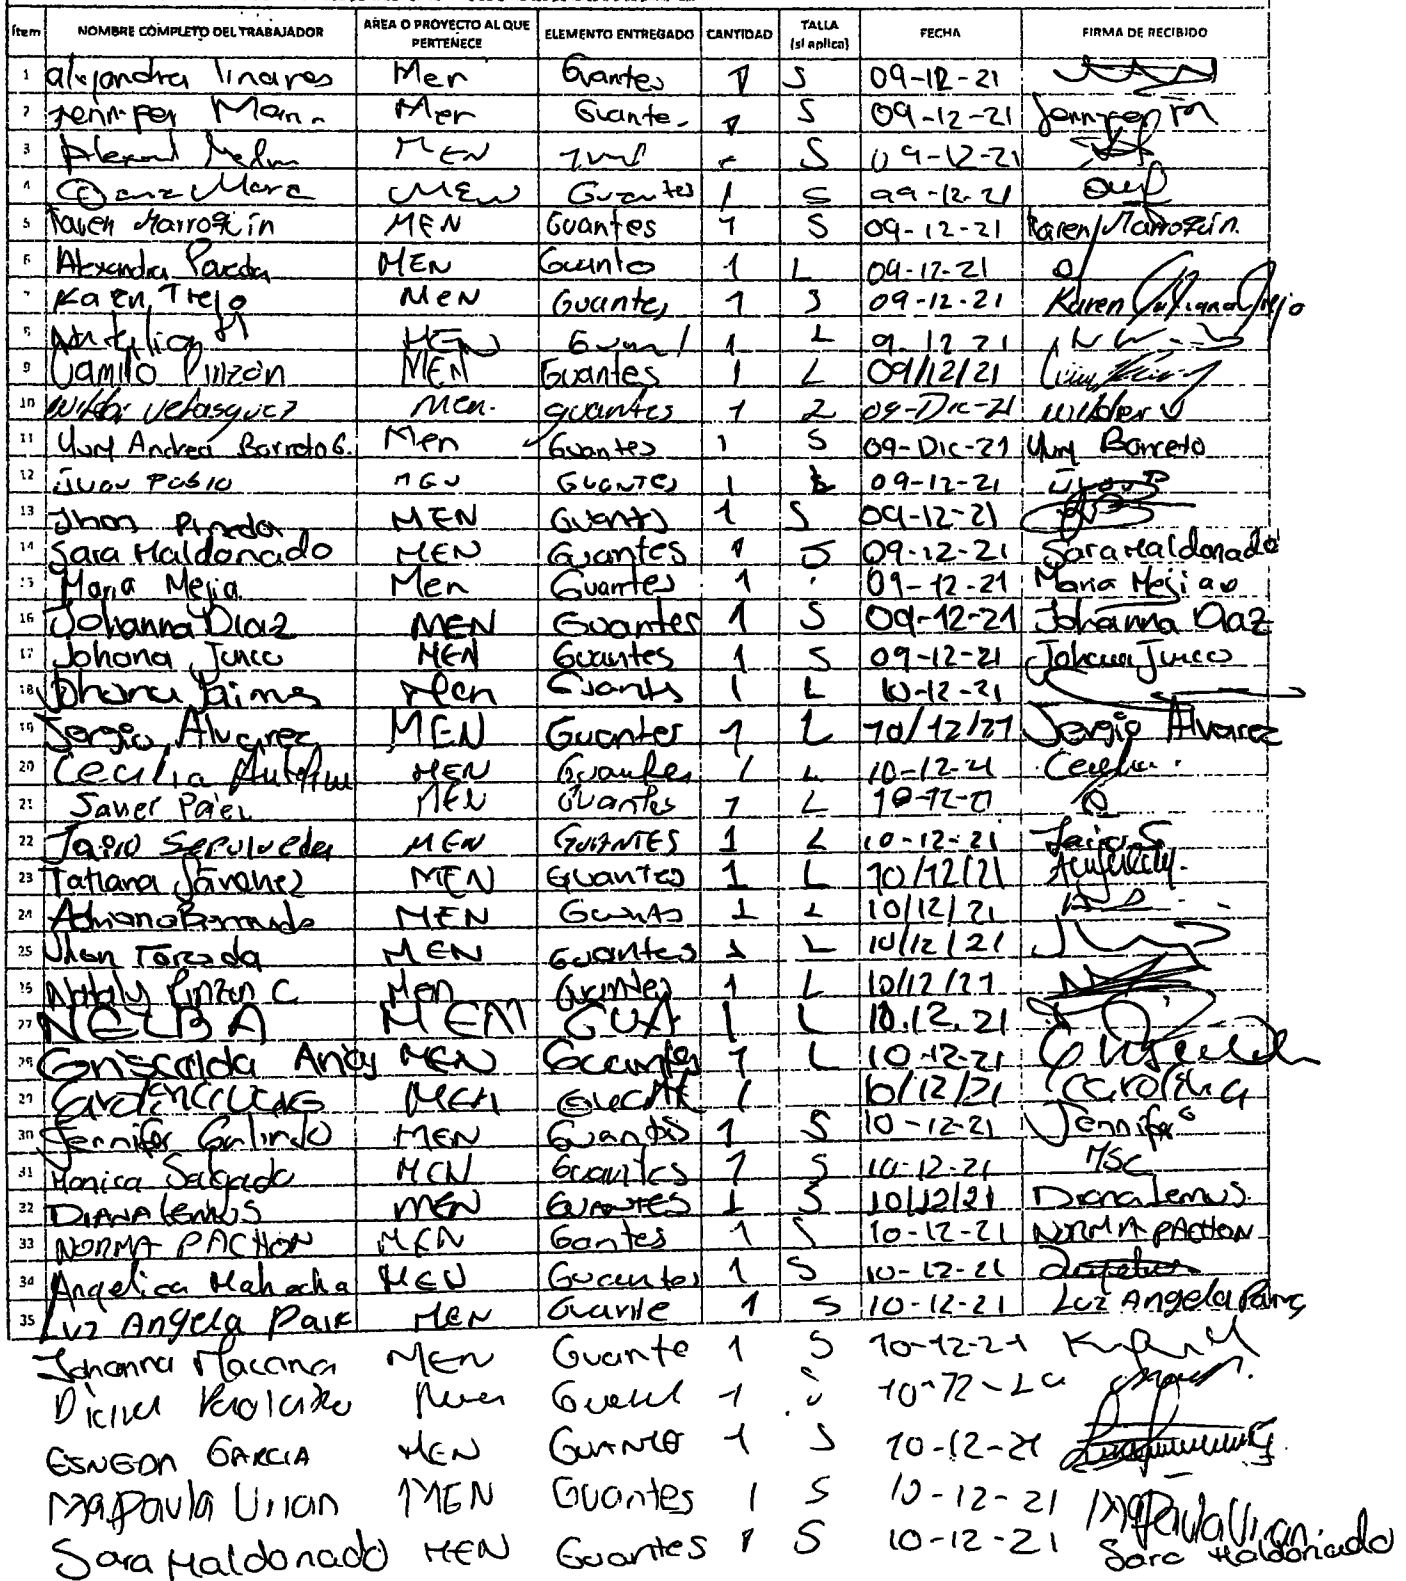 Ítem NOMBRE COMPLETO DEL TRABAJADOR AREA O PROYECTO AL QUE PERTENECE ELEMENTO ENTREGADO CANTIDAD TALLA (si aplica) FECHA FIRMA DE RECIBIDO
1 alejandra linares Men Guantes 1 S 09-12-21
2 Men Guante. 1 S 09-12-21
3 MEN S 09-12-21
4 MEN Guantes 1 S 09-12-21
5 Karen Marroquin MEN Guantes 1 S 09-12-21 Karen Marroquin.
6 Alexandra Poveda MEN Guante 1 L 09-12-21
7 Karen Trejo MEN Guantes 1 S 09-12-21 Karen
8 MEN 1 L 9.12 21
9 Camilo Pinzón MEN Guantes 1 L 09/12/21
10 Wilder Velasquez Men. guantes 1 2 09-Dic-21 Wilder V
11 Yury Andrea Barreto G. Men Guantes 1 S 09-Dic-21 Yury Barreto
12 Juan Pablo MEN Guantes 1 09-12-21
13 Jhon Pineda MEN Guantes 1 S 09-12-21
14 Sara Maldonado MEN Guantes 1 S 09-12-21 Sara Maldonado
15 Maria Mejia Men Guantes 1 09-12-21 Maria Mejia
16 Johanna Diaz MEN Guantes 1 S 09-12-21 Johanna Diaz
17 Johana Junco MEN Guantes 1 S 09-12-21 Johana Junco
18 Johana Jaimes Men Guants 1 L 10-12-21
19 Sergio Alvarez MEN Guantes 1 L 10/12/21 Sergio Alvarez
20 Cecilia MEN Guantes 1 L 10-12-21 Cecilia
21 Páez MEN Guantes 1 L
22 Jairo Sepulveda MEN GUANTES 1 L 10-12-21 Jairo S
23 Tatiana Sánchez MEN Guantes 1 L 10/12/21
24 Adriana MEN Guantes 1 L 10/12/21
25 Jhon MEN Guantes 1 L 10/12/21
26 Nataly Pinzon C Men Guantes 1 L 10/12/21
27 NELBA MEM GUA 1 L 10.12.21
28 Griscelda MEN Guantes 1 L 10-12-21
29 MEN 1 10/12/21 Carolina
30 Jennifer Galindo MEN Guantes 1 S 10-12-21 Jennifer
31 Monica Salgado MEN Guantes 1 S 10-12-21 MSC
32 DIANA Lemus MEN GUANTES 1 S 10/12/21 Diana Lemus.
33 NORMA PACHON MEN Gantes 1 S 10-12-21 NORMA PACHON
34 Angelica Mahecha MEN Guantes 1 S 10-12-21
35 Luz Angela Paez MEN Guante 1 S 10-12-21 Luz Angela
Johanna Macana MEN Guante 1 S 10-12-21
Diana 1
ESNEDA GARCIA MEN GUANTE 1 S 10-12-21
Ma Paula Urian MEN Guantes 1 S 10-12-21 Ma Paula Urian
Sara Maldonado MEN Guantes 1 S 10-12-21 Sara Maldonado